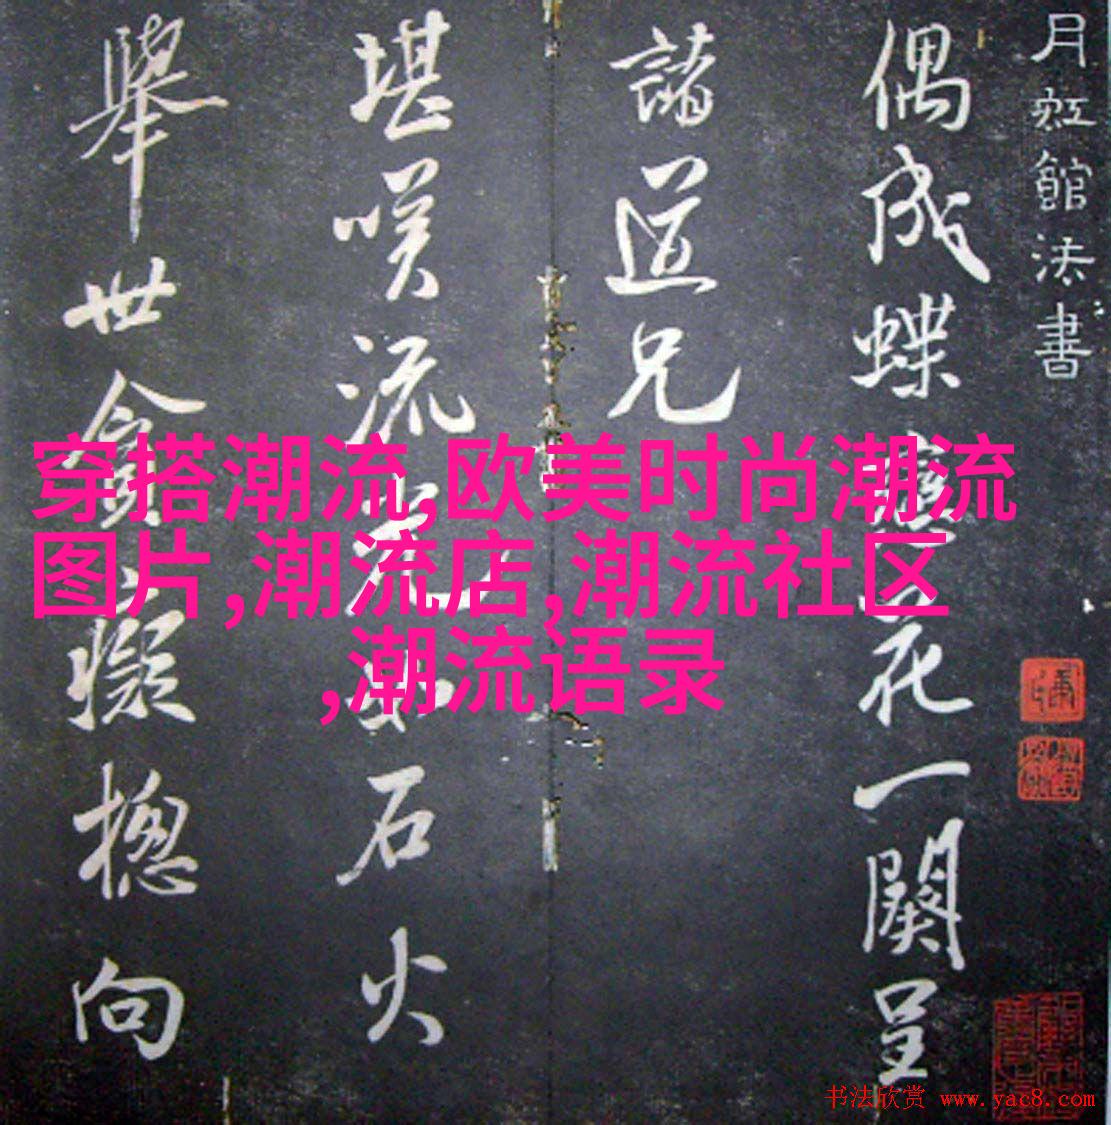 月虹館法書
偶成蝶戀花一闋呈
諸道兄
堪嘆流光如石火
舉世貪擬摠向
穿搭潮流,欧美时尚潮流
图片,潮流店,潮流社区
,潮流语录
书法欣赏 www.yac8.com